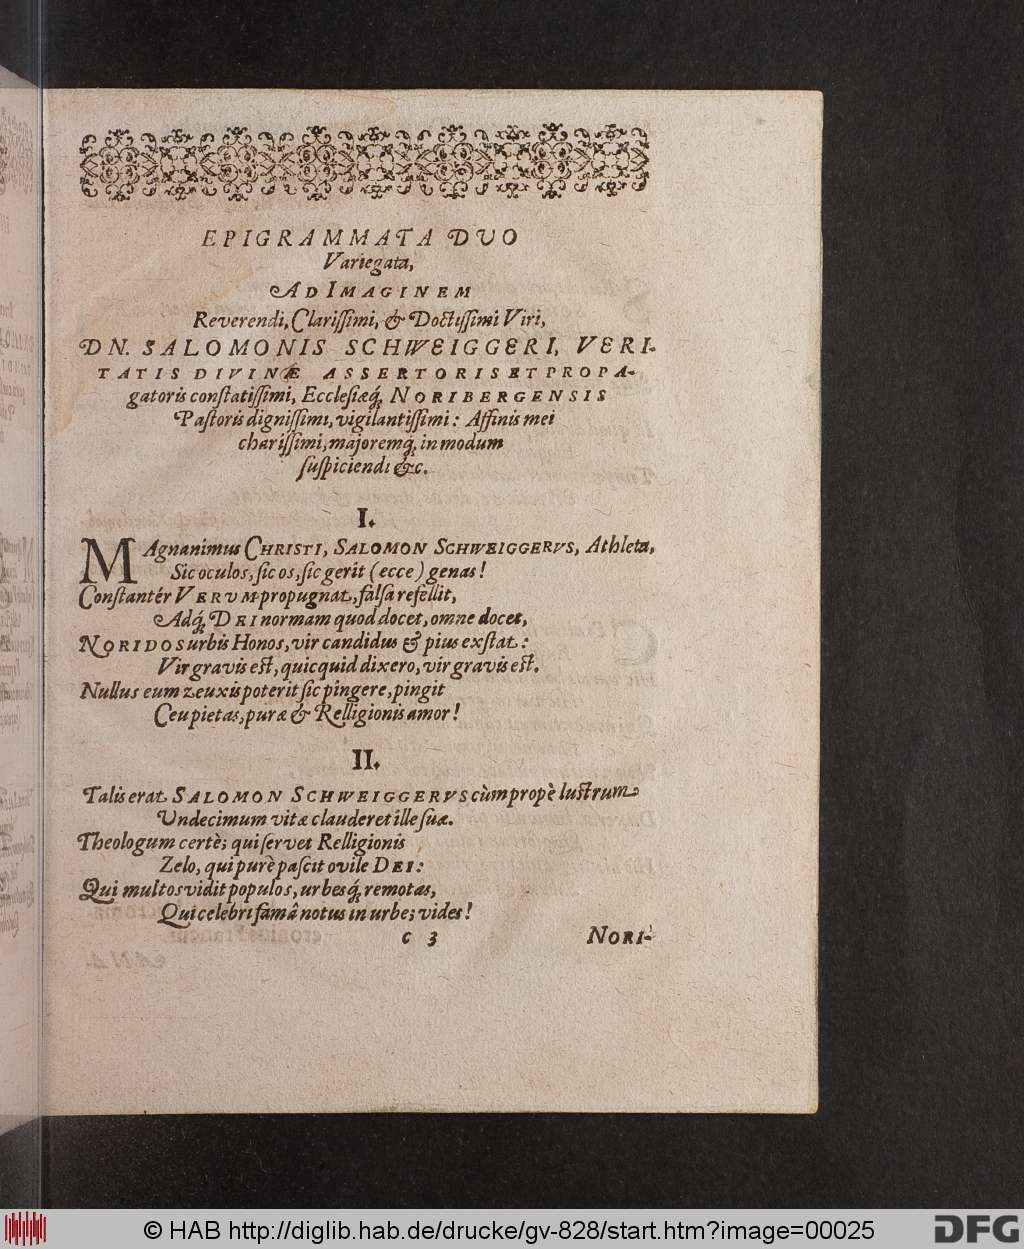 EPIGRAMMATA DUO
Variegata,
AD IMAGINEM
Reverendi, Clarissimi, & Doctissimi Viri,
DN. SALOMONIS SCHWEIGGERI, VERI-
TATIS DIVINÆ ASSERTORIS ET PROPA-
gatoris constatissimi, Ecclesiæq́; NORIBERGENSIS
Pastoris dignissimi, vigilantissimi: Affinis mei
charissimi, majoremq́; in modum
suspiciendi &c.
I.
MAgnanimus CHRISTI, SALOMON SCHWEIGGERVS, Athleta,
Sic oculos, sic os, sic gerit (ecce) genas!
Constantér VERVM propugnat, falsa refellit,
Adq́; DEI normam quod docet, omne docet,
NORIDOS urbis Honos, vir candidus & pius exstat:
Vir gravis est, quicquid dixero, vir gravis est.
Nullus eum zeuxis poterit sic pingere, pingit
Ceu pietas, puræ & Relligionis amor!
II.
Talis erat SALOMON SCHWEIGGERVS cùm propè lustrum
Undecimum vitæ clauderet ille suæ.
Theologum certè; qui servet Relligionis
Zelo, qui purè pascit ovile DEI:
Qui multos vidit populos, urbesq́; remotas,
Qui celebri famâ notus in urbe; vides!
c 3
NORI-
© HAB http://diglib.hab.de/drucke/gv-828/start.htm?image=00025
DFG